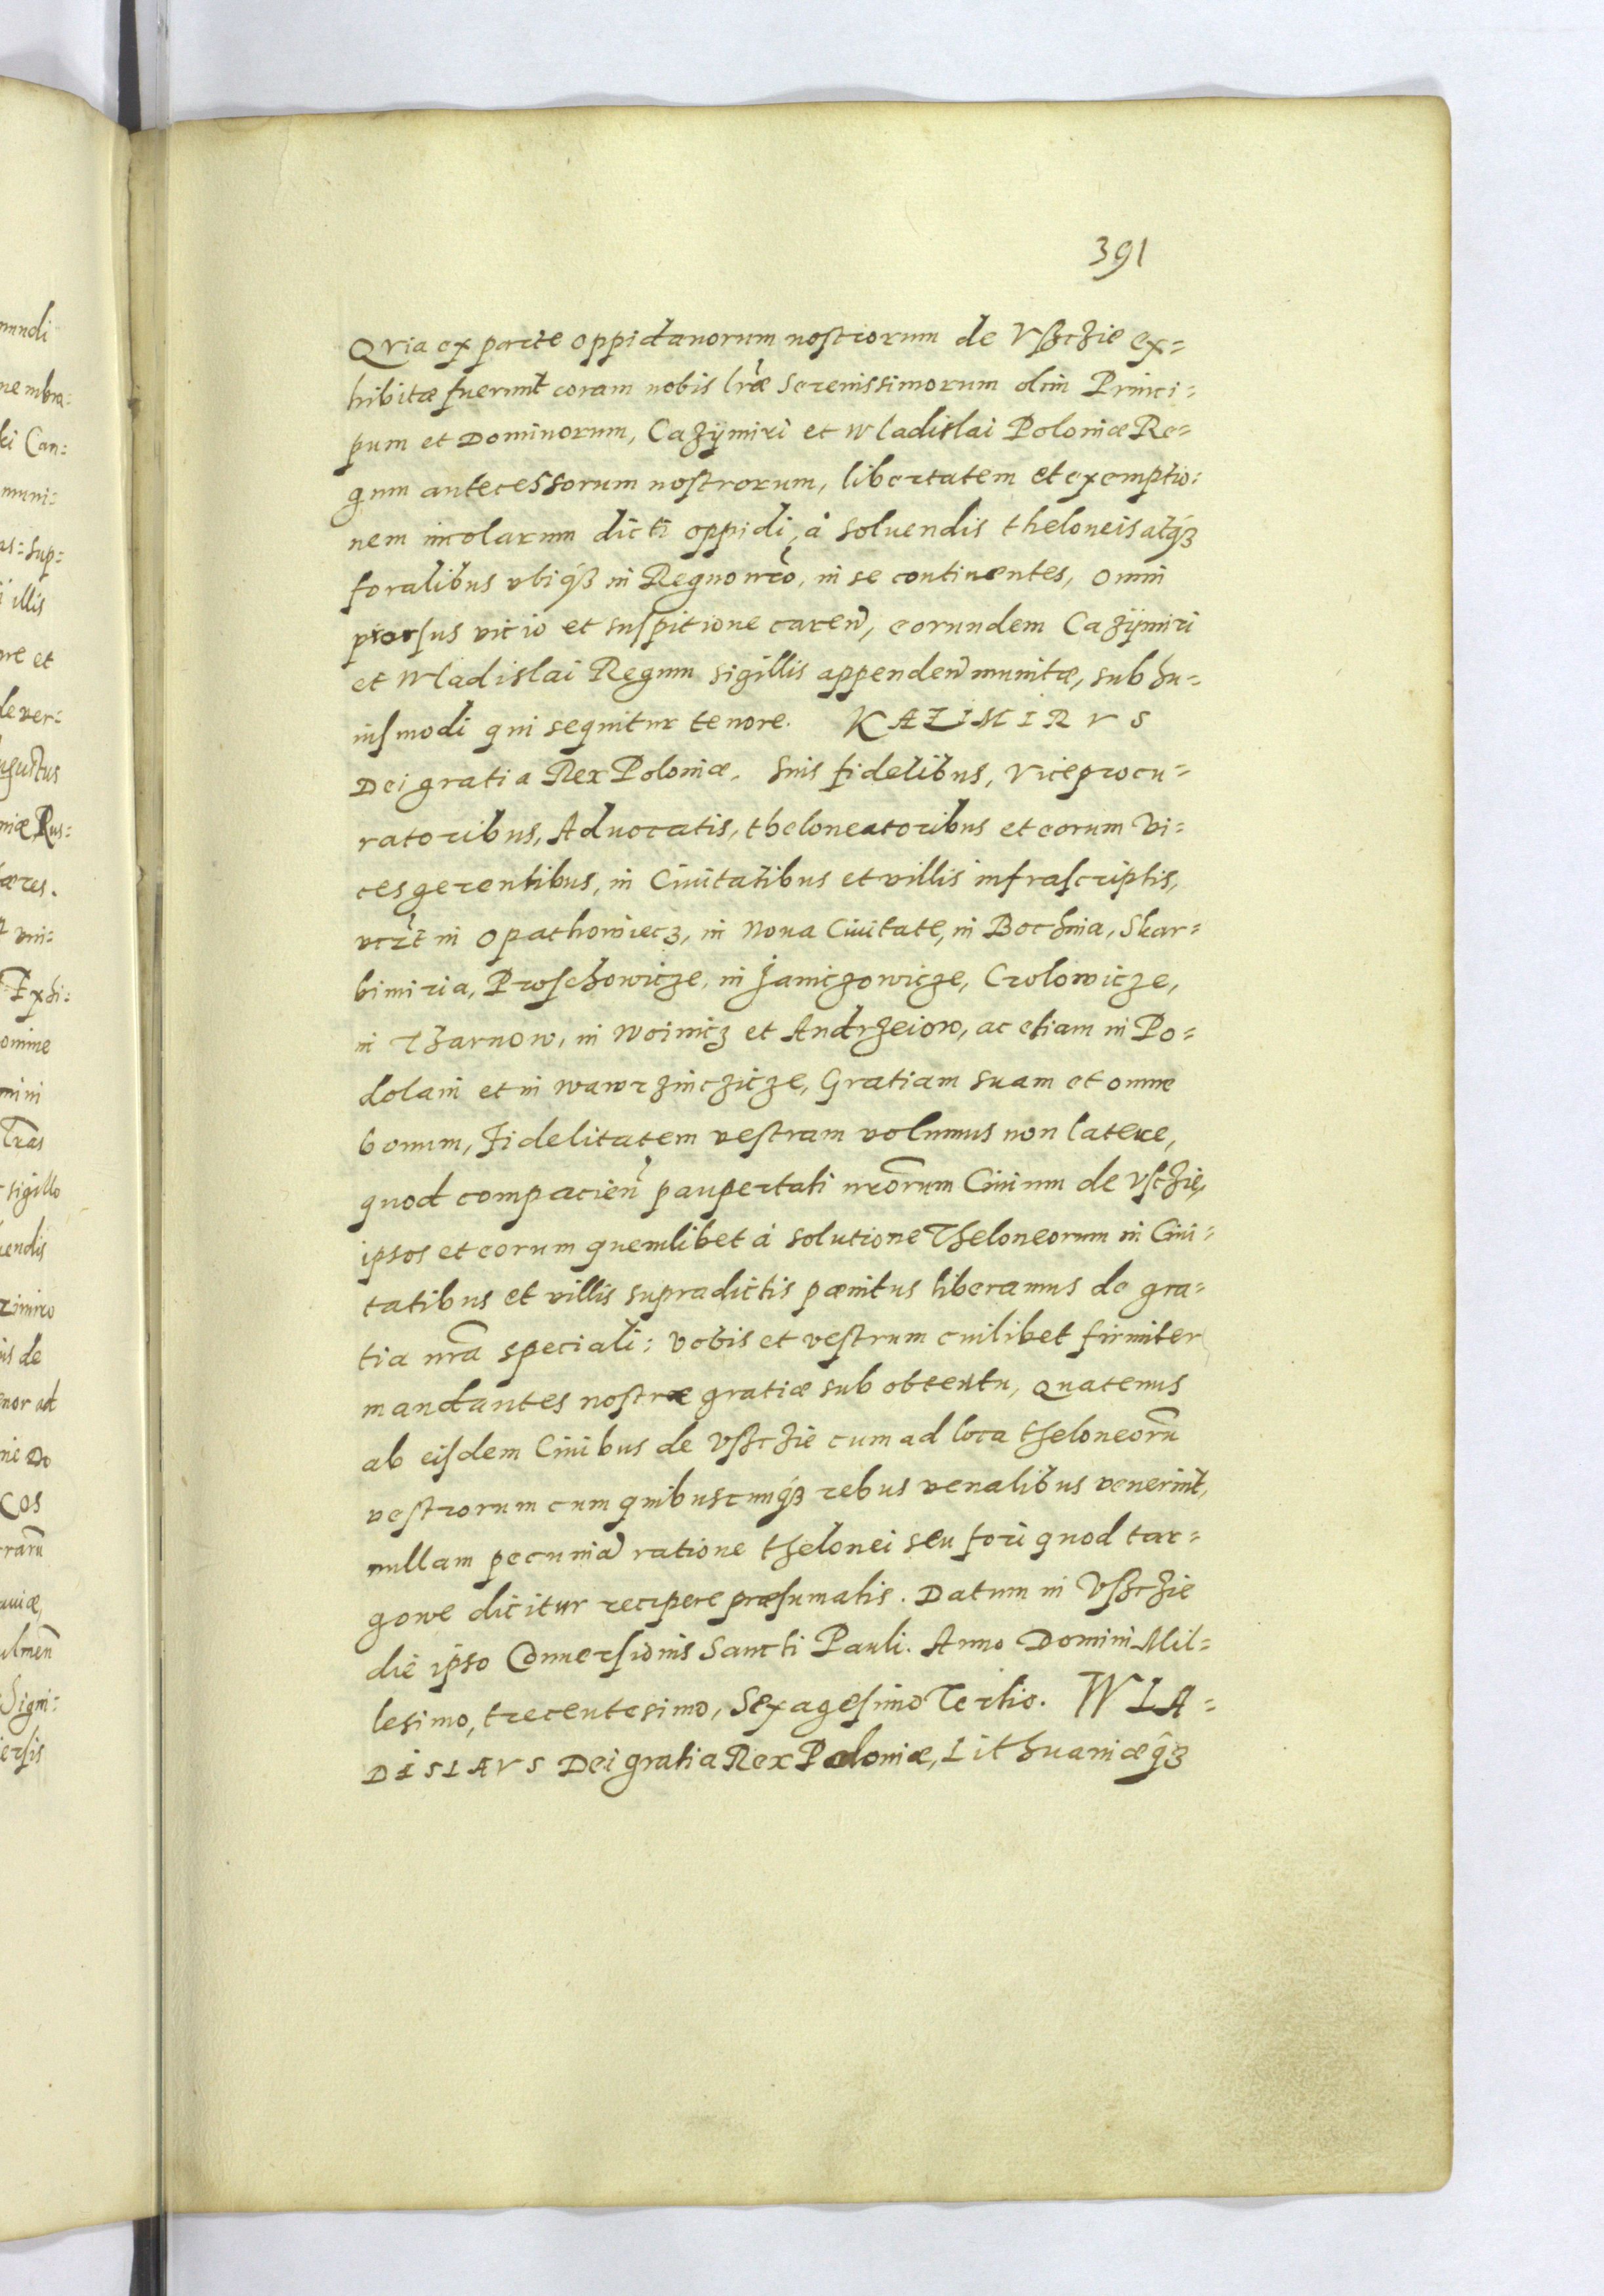 391
Qvia ex parte oppidanorum nostrorum de Vszczie ex=
hibitæ fuerunt coram nobis lræ Serenissimorum olim Princi=
pum et Dominorum, Cazÿmiri et Wladislai Poloniæ Re=
gum antecessorum nostrorum, libertatem et exemptio=
nem incolarum dicti oppidi, à soluendis theloneis atq́ȝ
foralibus vbiq́ȝ in Regno nrò, in se continentes, omni
prorsus vicio et suspitione caren̄, eorundem Cazÿmiri
et Wladislai Regum sigillis appenden̄ munitæ, sub hu=
iusmodi qui sequitur tenore. KAZIMIRVS
Dei gratia Rex Poloniæ. Suis fidelibus, Viceprocu=
ratoribus, Aduocatis, theloneatoribus et eorum Vi=
cesgerentibus, in Ciuitatibus et villis infrascriptis,
vczt in Opathowiecz, in Noua Ciuitate, in Bochnia, Skar=
bimiria, Proschowicze, in Janiczowicze, Crolowicze,
in Tharnow, in Woinicz et Andrzeiow, ac etiam in Po=
dolain et in Wawrzinczicze, Gratiam suam et omne
bonum, Fidelitatem vestram volumus non latere,
quod compacien̄ paupertati nrorum Ciuium de Vsczie,
ipsos et eorum quemlibet à solutione Theloneorum in Ciui=
tatibus et villis supradictis pænitus liberamus de gra=
tia nrā speciali: vobis et vestrum cuilibet firmiter
mandantes nostræ gratiæ sub obtentu, Quatenus
ab eisdem Ciuibus de Vszczie cum ad loca theloneorū
vestrorum cum quibuscunq́ȝ rebus venalibus venerint,
nullam pecuniā ratione thelonei seu fori quod tar=
gowe dicitur recipere præsumatis. Datum in Vszczie
die ipso Conuersionis Sancti Pauli. Anno Domini Mil=
lesimo, trecentesimo, Sexagesimo Tertio. WLA=
DISLAVS Dei gratia Rex Poloniæ, Lithuaniæq́ȝ